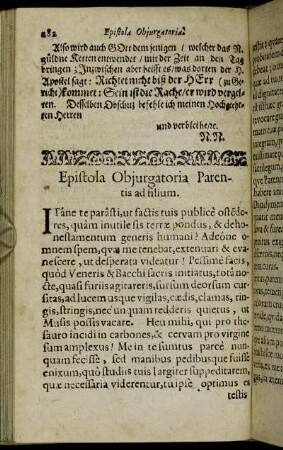 282 Epistola Objurgatoria.
Also wird auch GOtt dem jenigen / welcher das N.
güldne Ketten entwendet / mit der Zeit an den Tag
bringen; Inzwischen aber heisst es / was dorten der H.
Apostel sagt: Richtet nicht biß der HErr (zu Ge-
richt) kommet: Sein ist die Rache / er wird vergel-
ten. Desselben Obschutz befehle ich meinen Hochgeeh-
ten Herren
und verbleibe ꝛc.
N. N.
Epistola Objurgatoria Paren-
tis ad filium.
ITáne te parâsti, ut factis tuis publicè ostẽde-
res, quàm inutile sis terræ põndus, & deho-
nestamentum generis humani? Adeóne o-
mnem spem, quâ me tenebar, extenuari & eva-
nescere, ut desperata videatur! Pessimè facis,
quòd Veneris & Bacchi sacris initiatus, totâ no-
cte, quasi furiis agitareris, sursum deorsum cur-
sitas, ad lucem usque vigilas, cædis, clamas, rin-
gis, stringis, nec unquam redderis quietus, ut
Musis possis vacare. Heu mihi, qui pro the-
sauro incidi in carbones, & cervam pro virgine
sum amplexus! Me in te sumtus parcè nun-
quam fecisse, sed manibus pedibusque fuisse
enixum, quò studiis tuis largiter suppeditarem,
quæ necessaria viderentur, tu ipse optimus es
testis